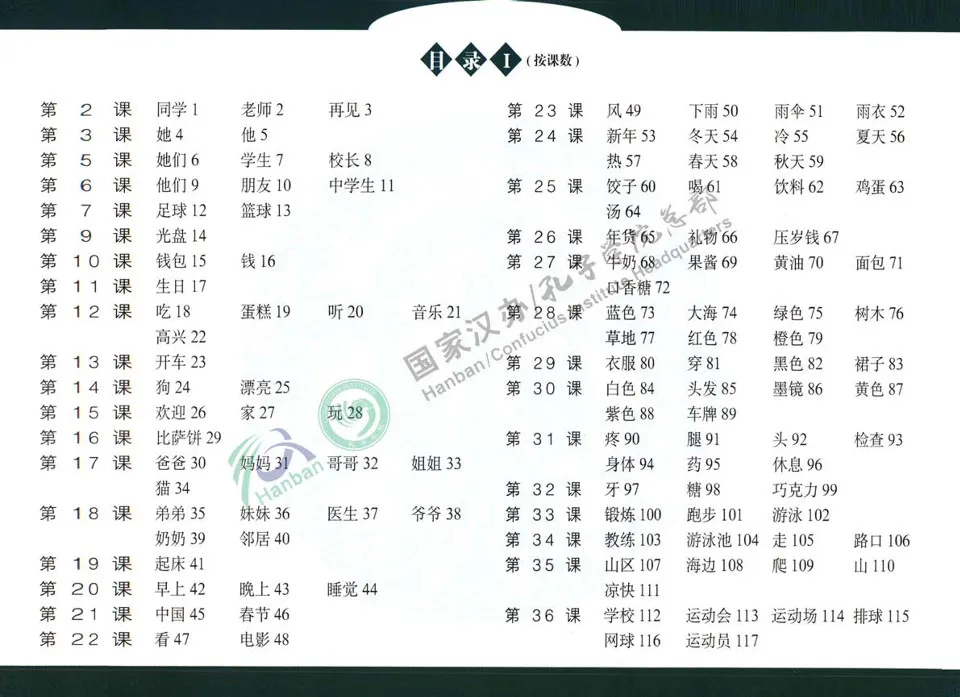 目录 I (按课数)
第 2 课 同学 1 老师 2 再见 3
第 3 课 她 4 他 5
第 5 课 她们 6 学生 7 校长 8
第 6 课 他们 9 朋友 10 中学生 11
第 7 课 足球 12 篮球 13
第 9 课 光盘 14
第 10 课 钱包 15 钱 16
第 11 课 生日 17
第 12 课 吃 18 蛋糕 19 听 20 音乐 21
高兴 22
第 13 课 开车 23
第 14 课 狗 24 漂亮 25
第 15 课 欢迎 26 家 27 玩 28
第 16 课 比萨饼 29
第 17 课 爸爸 30 妈妈 31 哥哥 32 姐姐 33
猫 34
第 18 课 弟弟 35 妹妹 36 医生 37 爷爷 38
奶奶 39 邻居 40
第 19 课 起床 41
第 20 课 早上 42 晚上 43 睡觉 44
第 21 课 中国 45 春节 46
第 22 课 看 47 电影 48
第 23 课 风 49 下雨 50 雨伞 51 雨衣 52
第 24 课 新年 53 冬天 54 冷 55 夏天 56
热 57 春天 58 秋天 59
第 25 课 饺子 60 喝 61 饮料 62 鸡蛋 63
汤 64
第 26 课 年货 65 礼物 66 压岁钱 67
第 27 课 牛奶 68 果酱 69 黄油 70 面包 71
口香糖 72
第 28 课 蓝色 73 大海 74 绿色 75 树木 76
草地 77 红色 78 橙色 79
第 29 课 衣服 80 穿 81 黑色 82 裙子 83
第 30 课 白色 84 头发 85 墨镜 86 黄色 87
紫色 88 车牌 89
第 31 课 疼 90 腿 91 头 92 检查 93
身体 94 药 95 休息 96
第 32 课 牙 97 糖 98 巧克力 99
第 33 课 锻炼 100 跑步 101 游泳 102
第 34 课 教练 103 游泳池 104 走 105 路口 106
第 35 课 山区 107 海边 108 爬 109 山 110
凉快 111
第 36 课 学校 112 运动会 113 运动场 114 排球 115
网球 116 运动员 117
国家汉办/孔子学院总部
Hanban/Confucius Institute Headquarters
Hanban